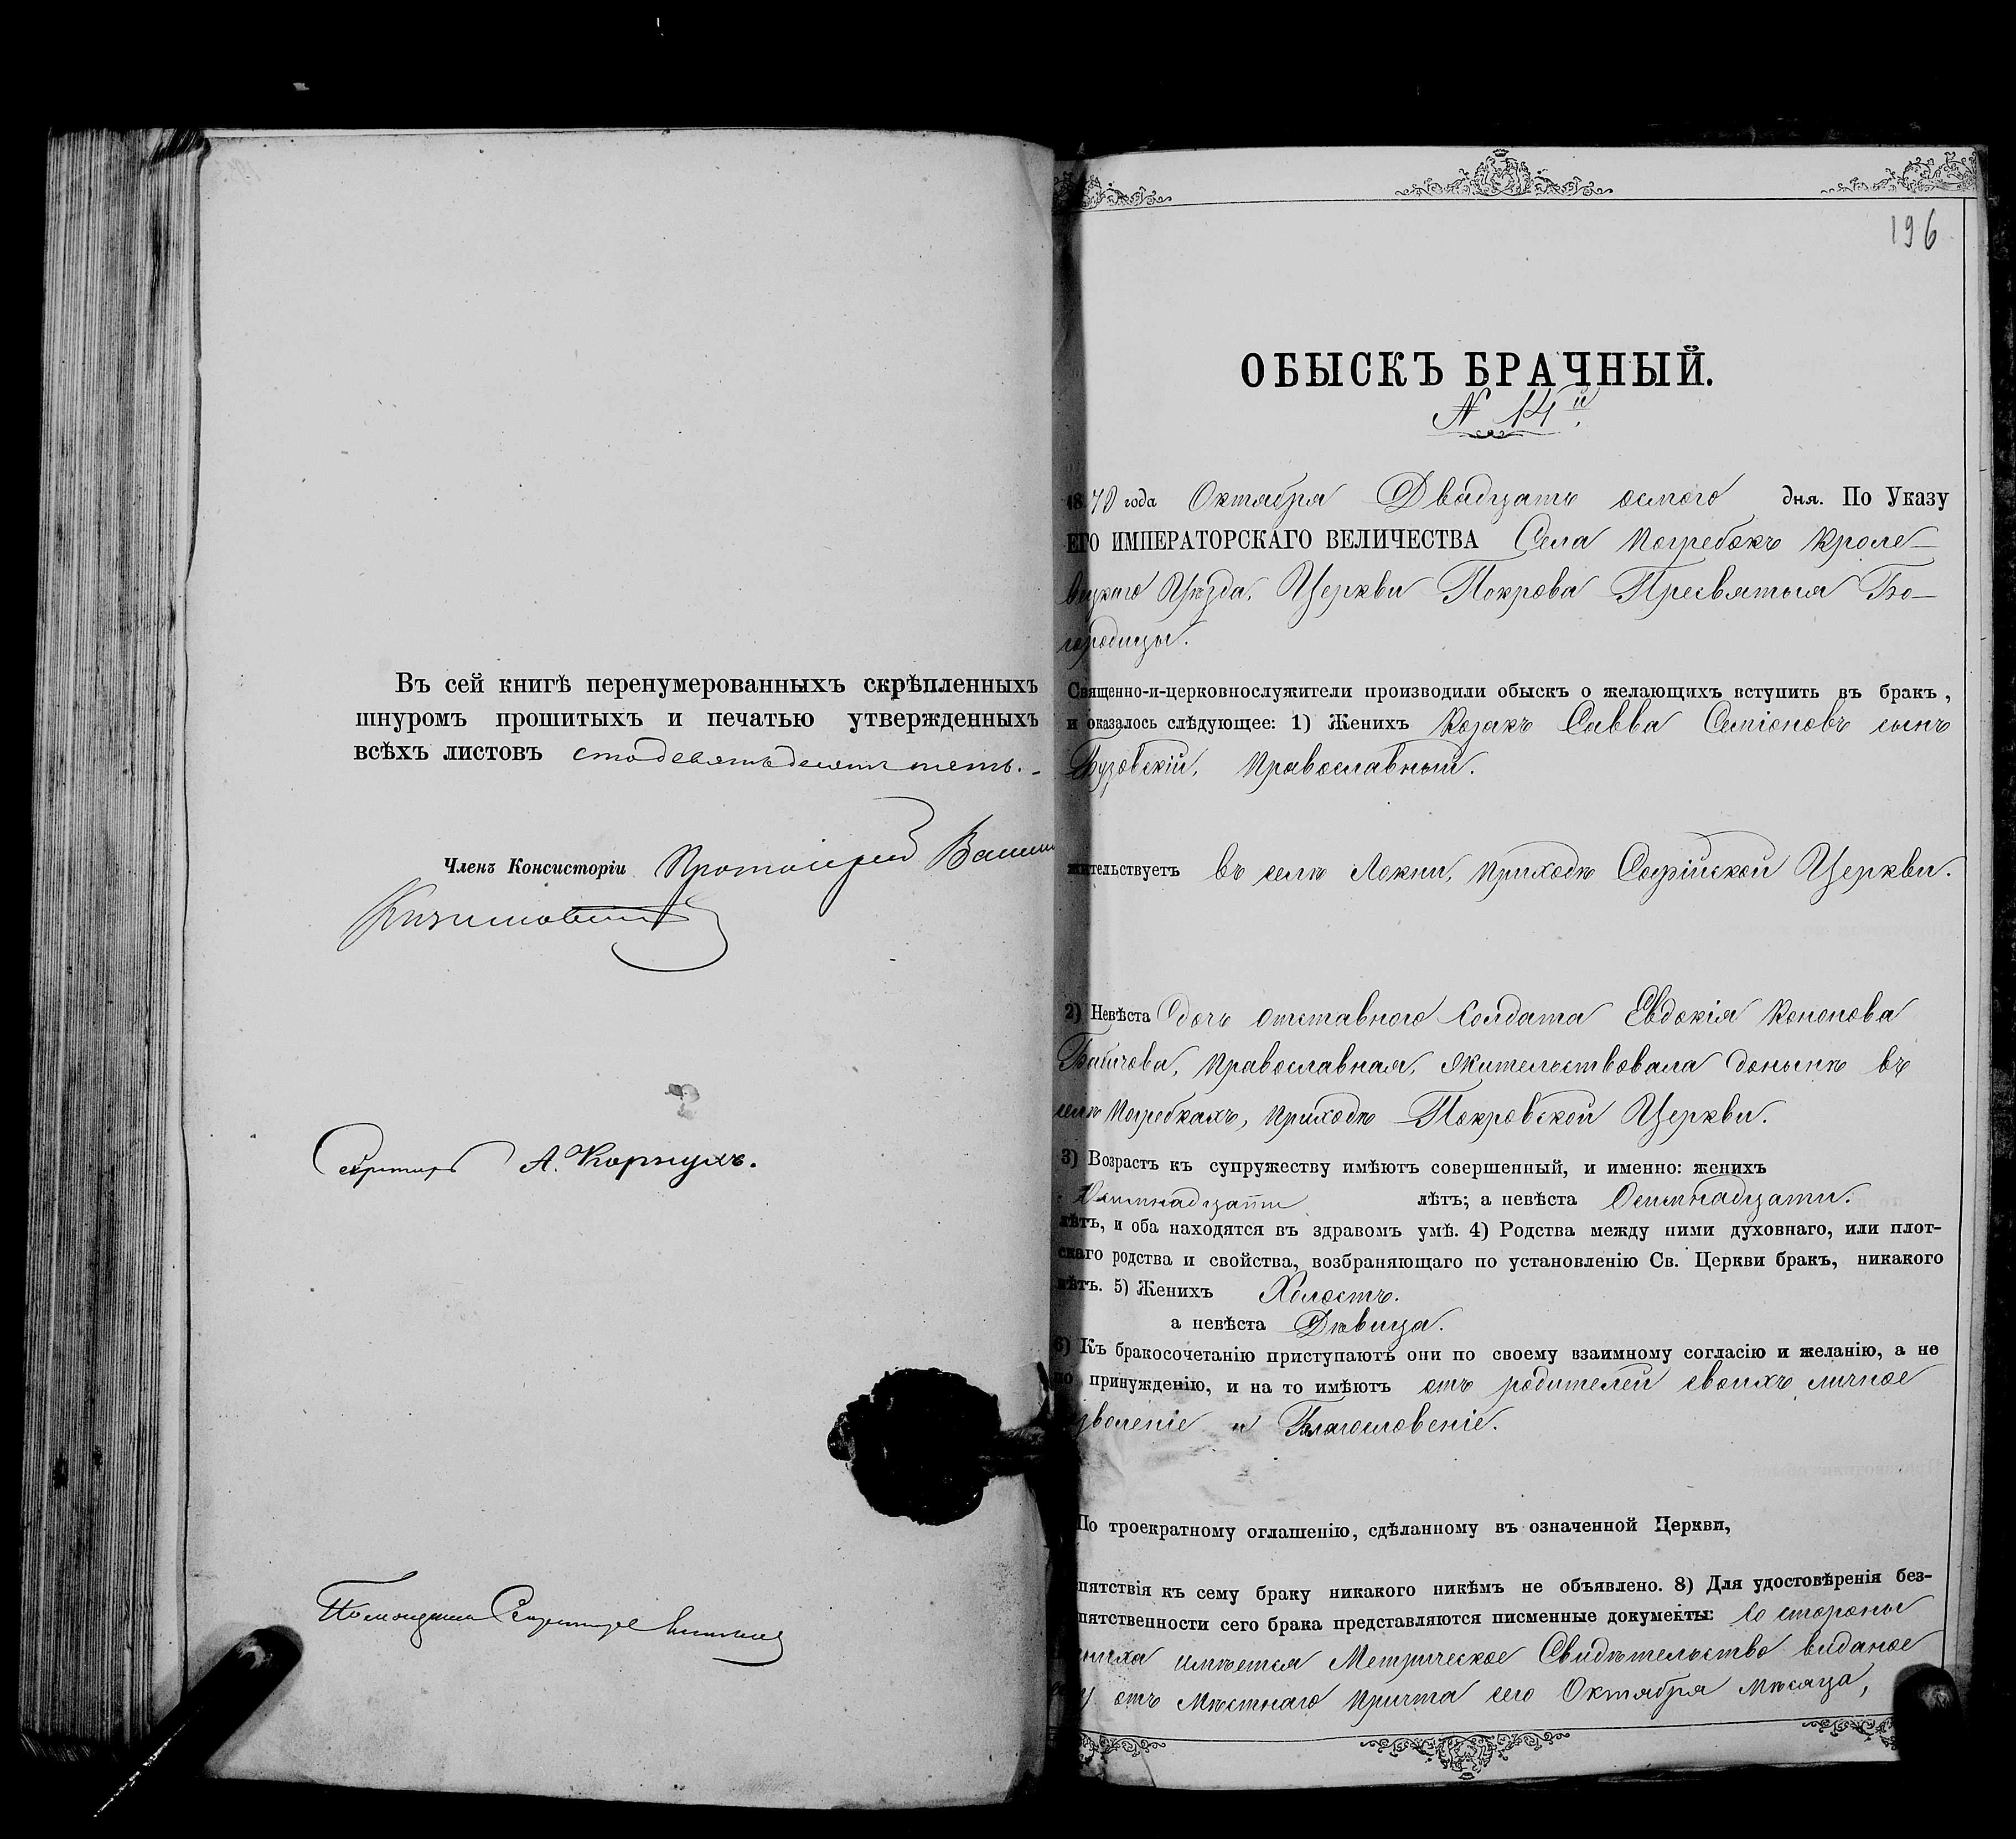 Въ сей книгѣ перенумерованныхъ скрѣпленныхъ
шнуромъ прошитыхъ и печатью утвержденныхъ
всѣхъ листовъ
Членъ Консисторіи Протоіерей
Секретарь А.
196
ОБЫСКЪ БРАЧНЫЙ.
№ 14й
года Октября Двадцать осмого дня. По Указу
ЕГО ИМПЕРАТОРСКАГО ВЕЛИЧЕСТВА Села Погребокъ Кроле-
вецкаго Уѣзда, Церкви Покрова Пресвятыя Бо-
городицы.
Священно-и-церковнослужители производили обыскъ о желающихъ вступить въ бракъ,
и оказалось слѣдующее: 1) Женихъ Козакъ Савва Семіоновъ сынъ
Бузовскій, Православный.
жительствуетъ въ селѣ Локни, приходѣ Софійской Церкви.
2) Невѣста дочь отставного Солдата Евдокія Кононова
Православная, жительствовала донынѣ въ
селѣ Погребкахъ, приходѣ Покровской Церкви.
3) Возрастъ къ супружеству имѣютъ совершенный, и именно: женихъ
лѣтъ; а невѣста Осьмнадцати.
лѣтъ, и оба находятся въ здравомъ умѣ. 4) Родства между ними духовнаго, или плот-
скаго родства и свойства, возбраняющаго по установленію Св. Церкви бракъ, никакого
нѣтъ. 5) Женихъ Холостъ.
а невѣста Дѣвица.
6) Къ бракосочетанію приступаютъ они по своему взаимному согласію и желанію, а не
по принужденію, и на то имѣютъ отъ родителей своихъ личное
зволеніе и Благословеніе.
По троекратному оглашенію, сдѣланному въ означенной Церкви,
пятствія къ сему браку никакого никѣмъ не объявлено. 8) Для удостовѣренія без-
пятственности сего брака представляются писменные документы: Со стороны
ниха имѣется Метрическое Свидѣтельство виданое
отъ Мѣстнаго Причта сего Октября Мѣсяца,